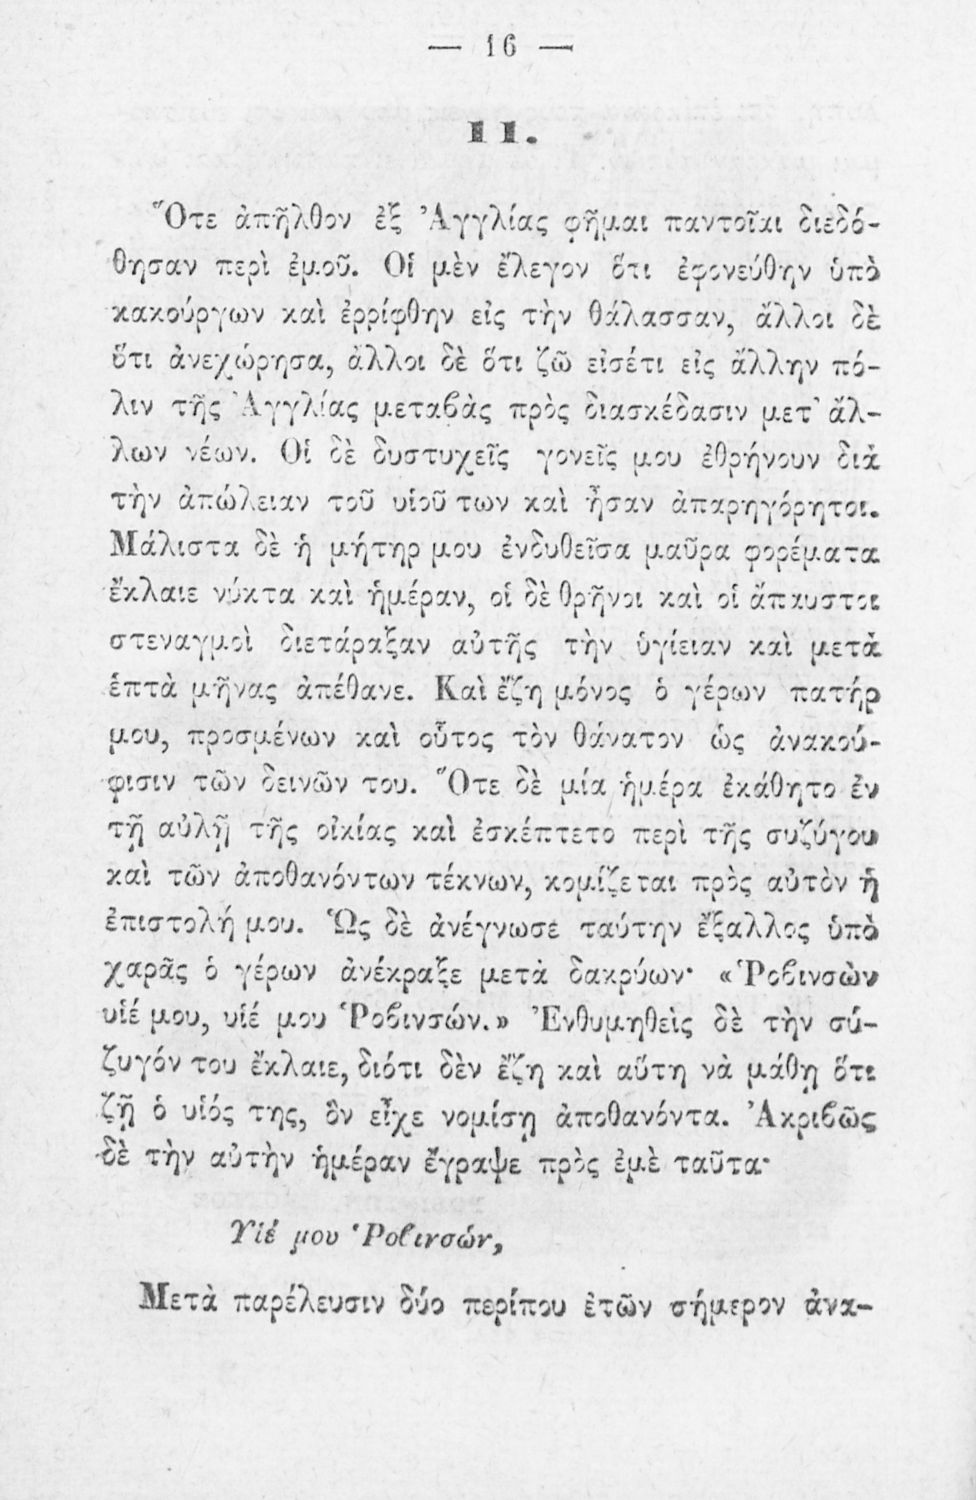 — 16 —
II.
Ὅτε ἀπῆλθον ἐξ Ἀγγλίας φῆμαι παντοῖαι διεδό-
θησαν περὶ ἐμοῦ. Οἱ μὲν ἔλεγον ὅτι ἐφονεύθην ὑπὸ
κακούργων καὶ ἐρρίφθην εἰς τὴν θάλασσαν, ἄλλοι δὲ
ὅτι ἀνεχώρησα, ἄλλοι δὲ ὅτι ζῶ εἰσέτι εἰς ἄλλην πό-
λιν τῆς Ἀγγλίας μεταβὰς πρὸς διασκέδασιν μετ' ἄλ-
λων νέων. Οἱ δὲ δυστυχεῖς γονεῖς μου ἐθρήνουν διὰ
τὴν ἀπώλειαν τοῦ υἱοῦ των καὶ ἦσαν ἀπαρηγόρητοι.
Μάλιστα δὲ ἡ μήτηρ μου ἐνδυθεῖσα μαῦρα φορέματα
ἔκλαιε νύκτα καὶ ἡμέραν, οἱ δὲ θρῆνοι καὶ οἱ ἄπαυστοι
στεναγμοὶ διετάραξαν αὐτῆς τὴν ὑγίειαν καὶ μετὰ
ἑπτὰ μῆνας ἀπέθανε. Καὶ ἔζη μόνος ὁ γέρων πατήρ
μου, προσμένων καὶ οὗτος τὸν θάνατον ὡς ἀνακού-
φισιν τῶν δεινῶν του. Ὅτε δὲ μία ἡμέρα ἐκάθητο ἐν
τῇ αὐλῇ τῆς οἰκίας καὶ ἐσκέπτετο περὶ τῆς συζύγου
καὶ τῶν ἀποθανόντων τέκνων, κομίζεται πρὸς αὐτὸν ἡ
ἐπιστολή μου. Ὡς δὲ ἀνέγνωσε ταύτην ἔξαλλος ὑπὸ
χαρᾶς ὁ γέρων ἀνέκραξε μετὰ δακρύων· «Ῥοβινσὼν
υἱέ μου, υἱέ μου Ῥοβινσών.» Ἐνθυμηθεὶς δὲ τὴν σύ-
ζυγόν του ἔκλαιε, διότι δὲν ἔζη καὶ αὕτη νὰ μάθῃ ὅτι
ζῇ ὁ υἱός της, ὃν εἶχε νομίσῃ ἀποθανόντα. Ἀκριβῶς
δὲ τὴν αὐτὴν ἡμέραν ἔγραψε πρὸς ἐμὲ ταῦτα·
Υἱέ μου Ῥοβινσών,
Μετὰ παρέλευσιν δύο περίπου ἐτῶν σήμερον ἀνα-